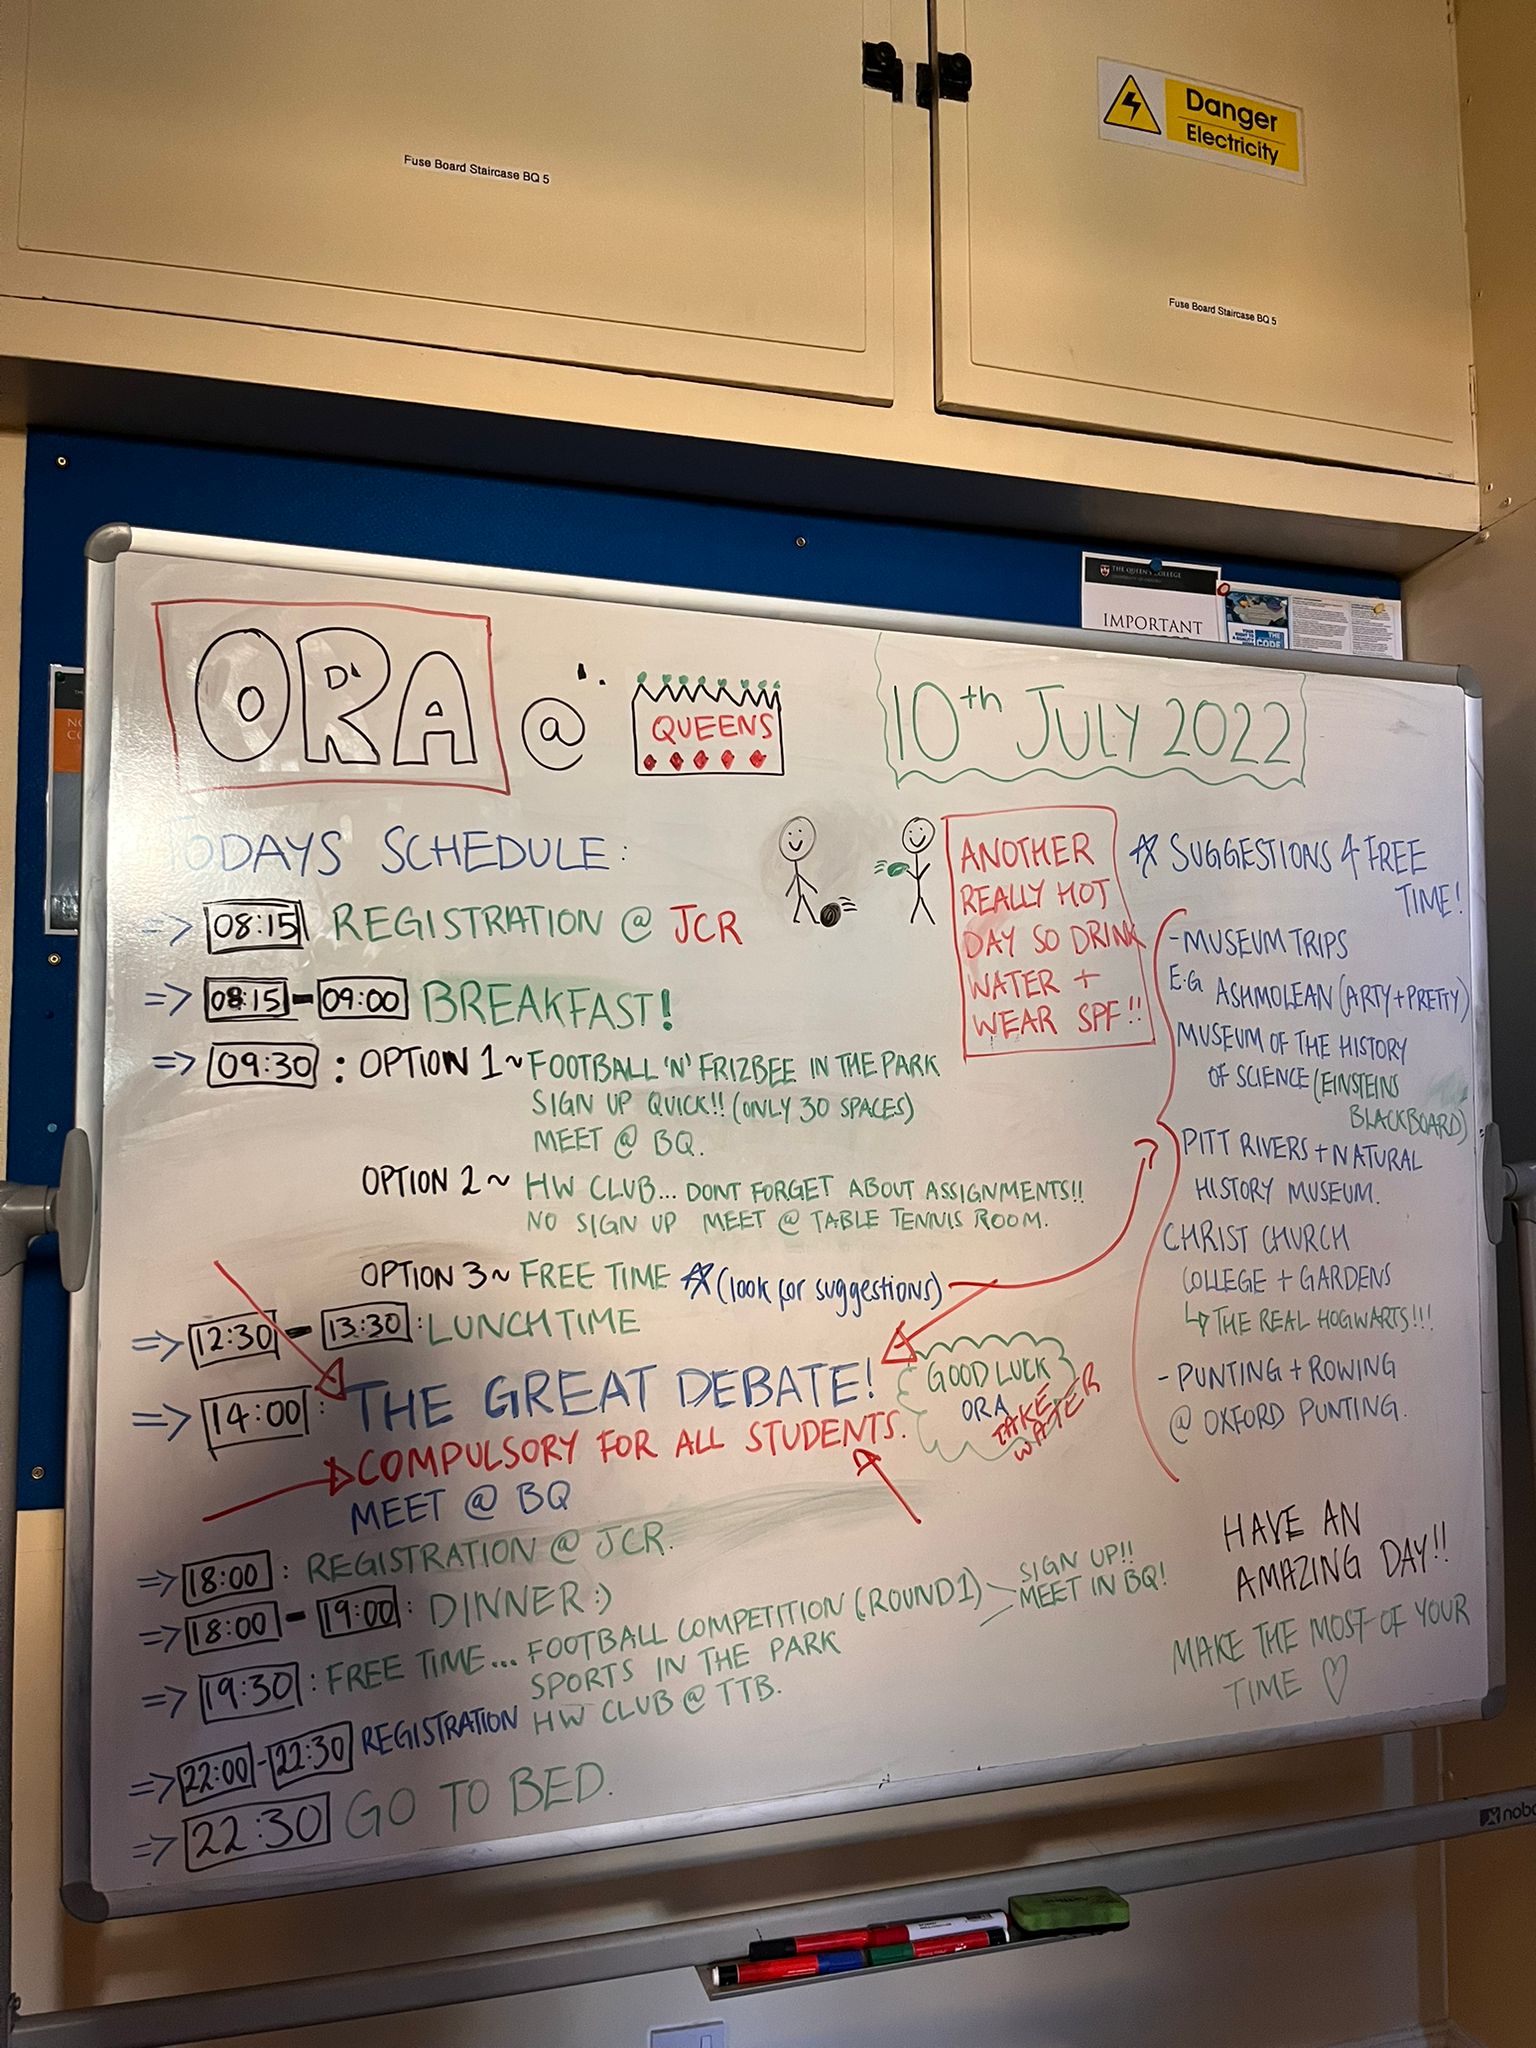 Fuse Board Staircase BQ 5
Danger
Electricity
Fuse Board Staircase BQ 5
THE QUEEN'S COLLEGE
IMPORTANT
THE
CODE
ORA @ QUEENS
10th JULY 2022
TODAYS SCHEDULE:
=> 08:15 REGISTRATION @ JCR
=> 08:15 - 09:00 BREAKFAST!
=> 09:30 : OPTION 1 ~ FOOTBALL 'N' FRIZBEE IN THE PARK
SIGN UP QUICK!! (ONLY 30 SPACES)
MEET @ BQ.
OPTION 2 ~ HW CLUB... DONT FORGET ABOUT ASSIGNMENTS!!
NO SIGN UP MEET @ TABLE TENNIS ROOM.
OPTION 3 ~ FREE TIME ☆ (look for suggestions)
=> 12:30 - 13:30 : LUNCHTIME
=> 14:00 : THE GREAT DEBATE!
COMPULSORY FOR ALL STUDENTS.
MEET @ BQ
GOOD LUCK
ORA
TAKE
WATER
=> 18:00 : REGISTRATION @ JCR.
=> 18:00 - 19:00 : DINNER :)
=> 19:30 : FREE TIME... FOOTBALL COMPETITION (ROUND 1)
SIGN UP!!
MEET IN BQ!
SPORTS IN THE PARK
HW CLUB @ TTB.
=> 22:00 - 22:30 REGISTRATION
=> 22:30 GO TO BED.
ANOTHER
REALLY HOT
DAY SO DRINK
WATER +
WEAR SPF!!
☆ SUGGESTIONS 4 FREE
TIME!
- MUSEUM TRIPS
E.G. ASHMOLEAN (ARTY + PRETTY)
MUSEUM OF THE HISTORY
OF SCIENCE (EINSTEINS
BLACKBOARD)
PITT RIVERS + NATURAL
HISTORY MUSEUM.
CHRIST CHURCH
COLLEGE + GARDENS
↳ THE REAL HOGWARTS!!!
- PUNTING + ROWING
@ OXFORD PUNTING.
HAVE AN
AMAZING DAY!!
MAKE THE MOST OF YOUR
TIME ♡
nobo